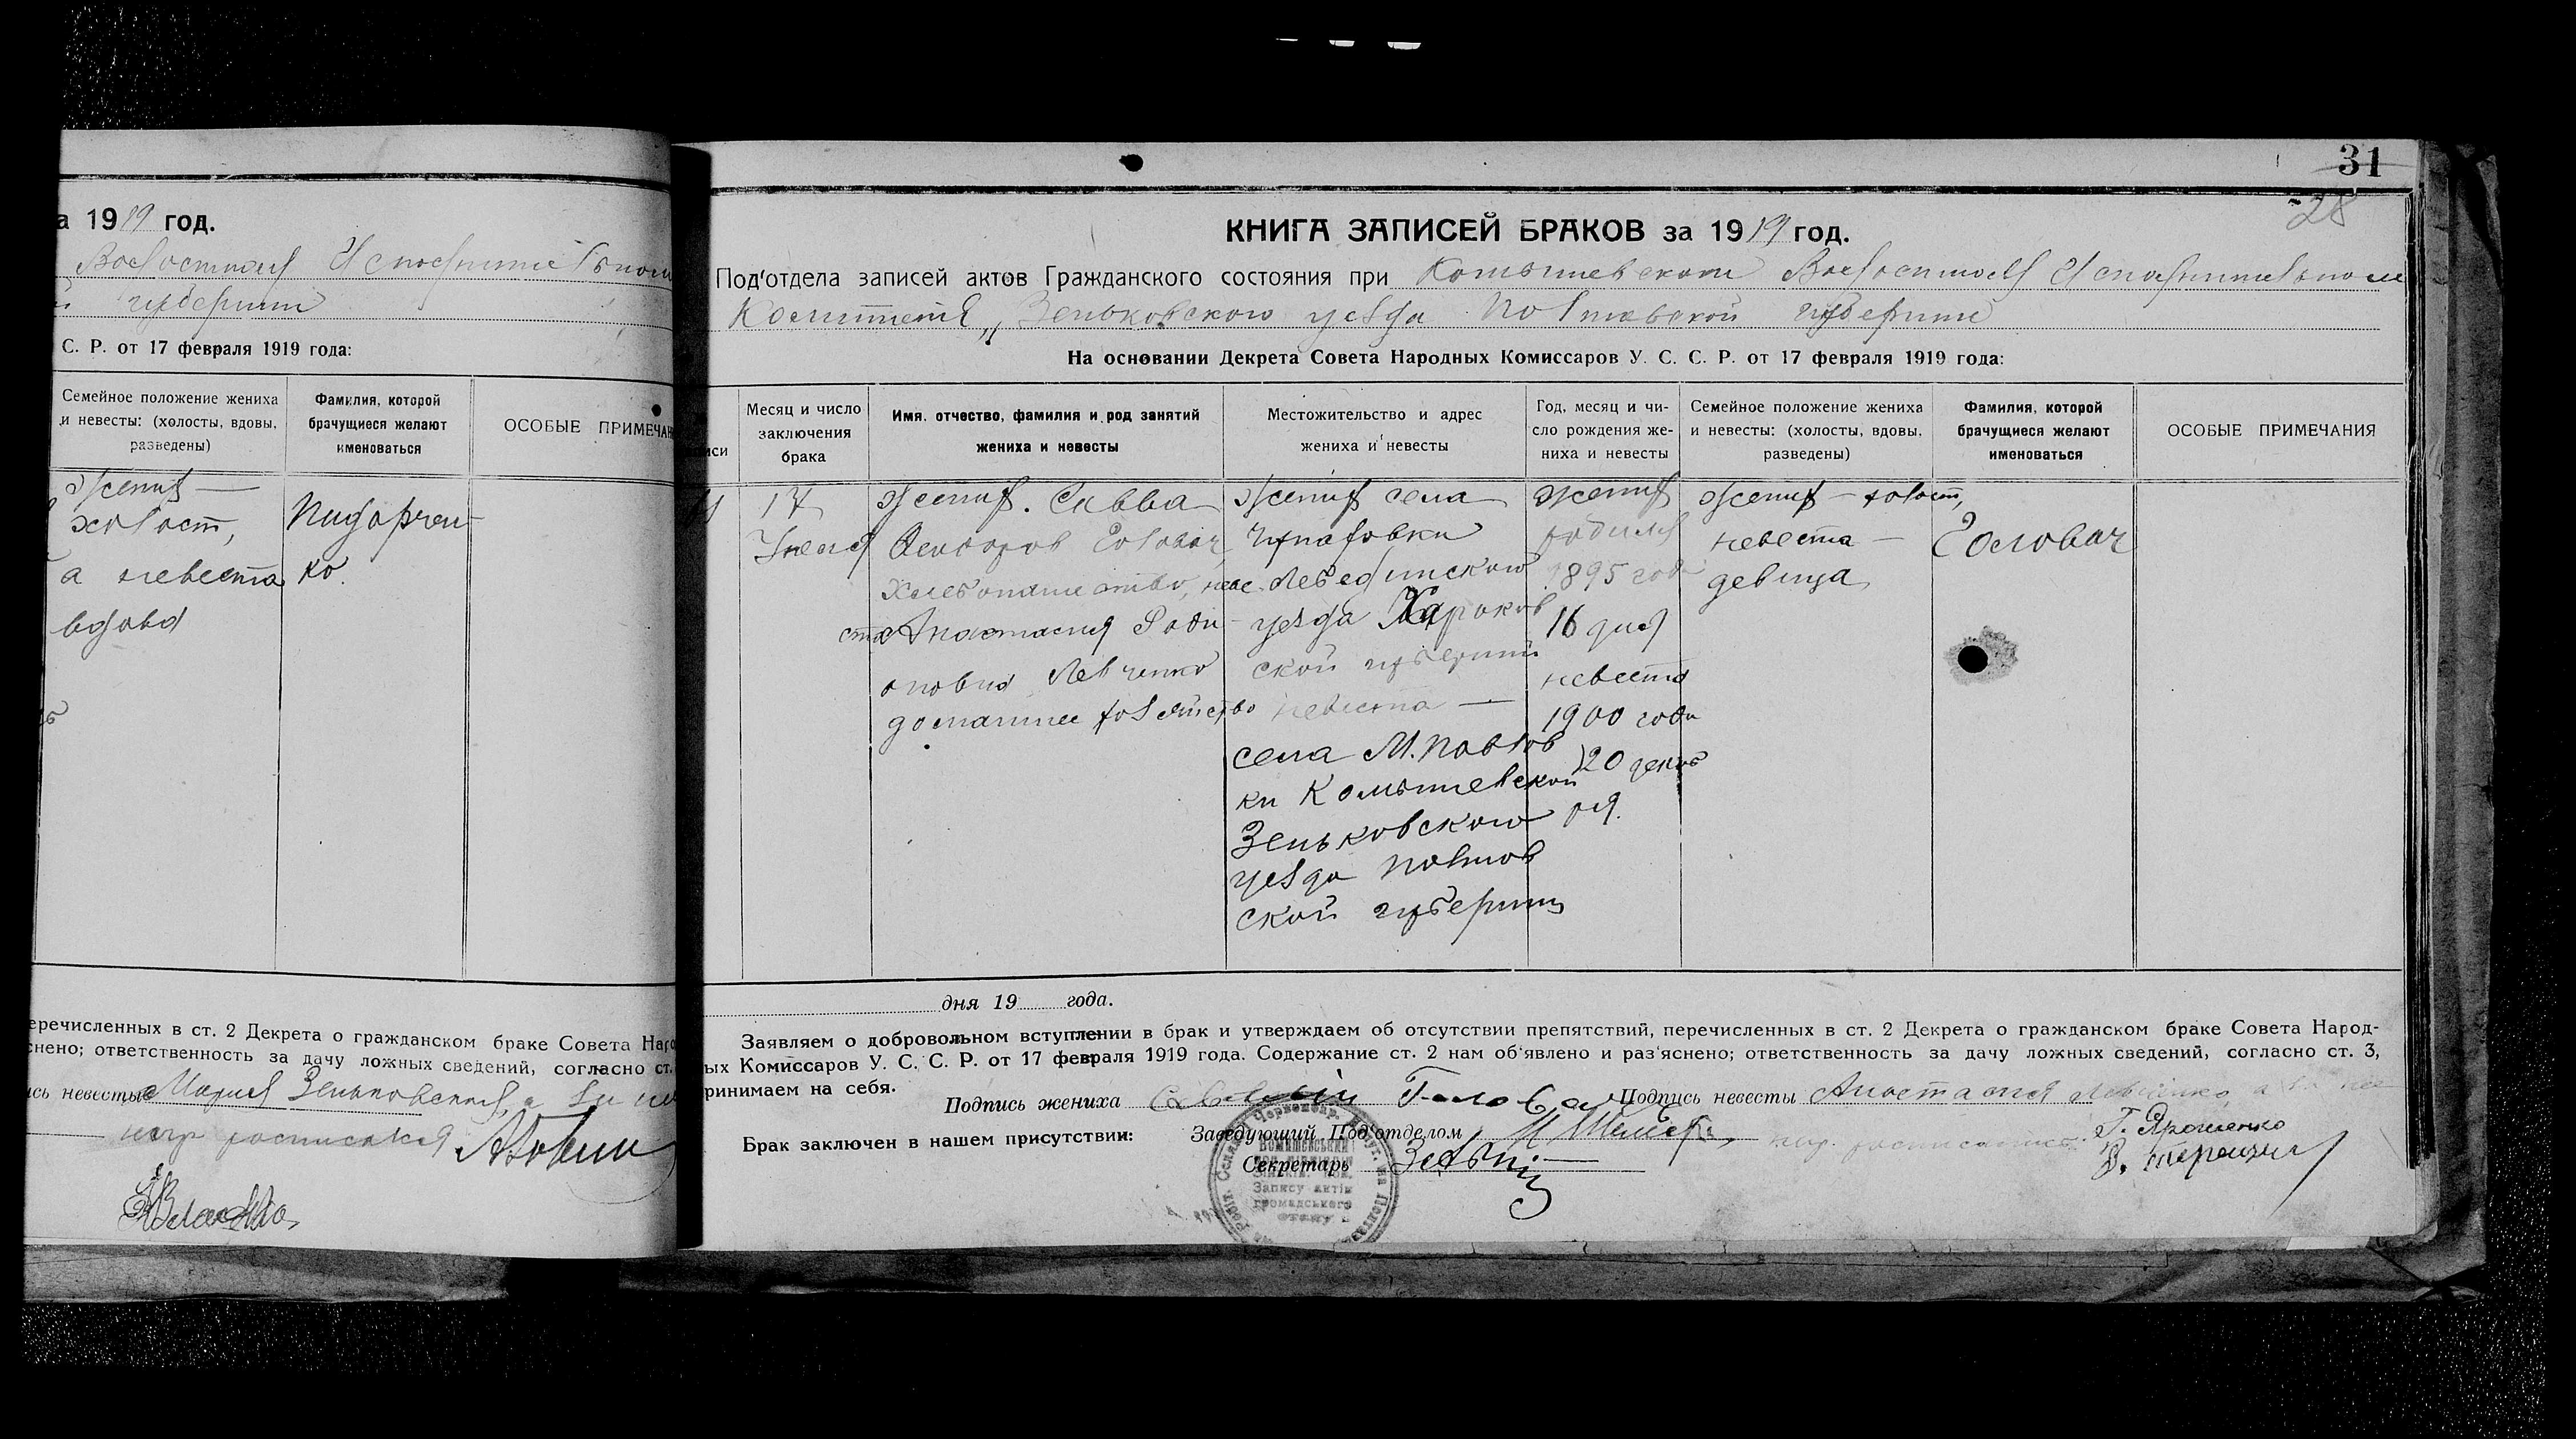 а 1919 год.
Волостном Исполнительном
губернии
С. Р. от 17 февраля 1919 года:
Семейное положение жениха
и невесты: (холосты, вдовы,
разведены)
Фамилия, которой
брачущиеся желают
именоваться
ОСОБЫЕ ПРИМЕЧАН
Жених —
холост,
а невеста
вдова
Пидорчен-
ко.
еречисленных в ст. 2 Декрета о гражданском браке Совета Нар
снено; ответственность за дачу ложных сведений, согласно ст.
сь невесты Мария Зеньковская, а за не
негр росписался
31
28
КНИГА ЗАПИСЕЙ БРАКОВ за 1919 год.
Под'отдела записей актов Гражданского состояния при Комышевском Волостном Исполнительном
Комитете, Зеньковского уезда Полтавской губернии
На основании Декрета Совета Народных Комиссаров У. С. С. Р. от 17 февраля 1919 года:
иси
Месяц и число
заключения
брака
Имя, отчество, фамилия и род занятий
жениха и невесты
Местожительство и адрес
жениха и невесты
Год, месяц и чи-
сло рождения же-
ниха и невесты
Семейное положение жениха
и невесты: (холосты, вдовы,
разведены)
Фамилия, которой
брачущиеся желают
именоваться
ОСОБЫЕ ПРИМЕЧАНИЯ
17
Июня
Жених. Савва
Феодоров Головач
хлебопашество, неве
ста Анастасия Роди-
онова Левченко
домашнее хозяйство
Жених села
Лебединского
уезда Харьков
ской губернии
невеста —
села М. Павлов
ки Комышевской
Зеньковского
уезда Полтов
ской губернии
Жених
родился
1895 года
16 дня
невеста
1900 года
20 декаб
ря.
Жених — холост,
невеста —
девица
Головач
дня 19 года.
Заявляем о добровольном вступлении в брак и утверждаем об отсутствии препятствий, перечисленных в ст. 2 Декрета о гражданском браке Совета Народ-
ых Комиссаров У. С. С. Р. от 17 февраля 1919 года. Содержание ст. 2 нам об'явлено и раз'яснено; ответственность за дачу ложных сведений, согласно ст. 3,
ринимаем на себя.
Подпись жениха Головач Подпись невесты Анастасия Левченко, а за нее
Брак заключен в нашем присутствии: Заведующий Под'отделом
Г. Ярошенко
Секретарь
Запису актів
громадського
стану